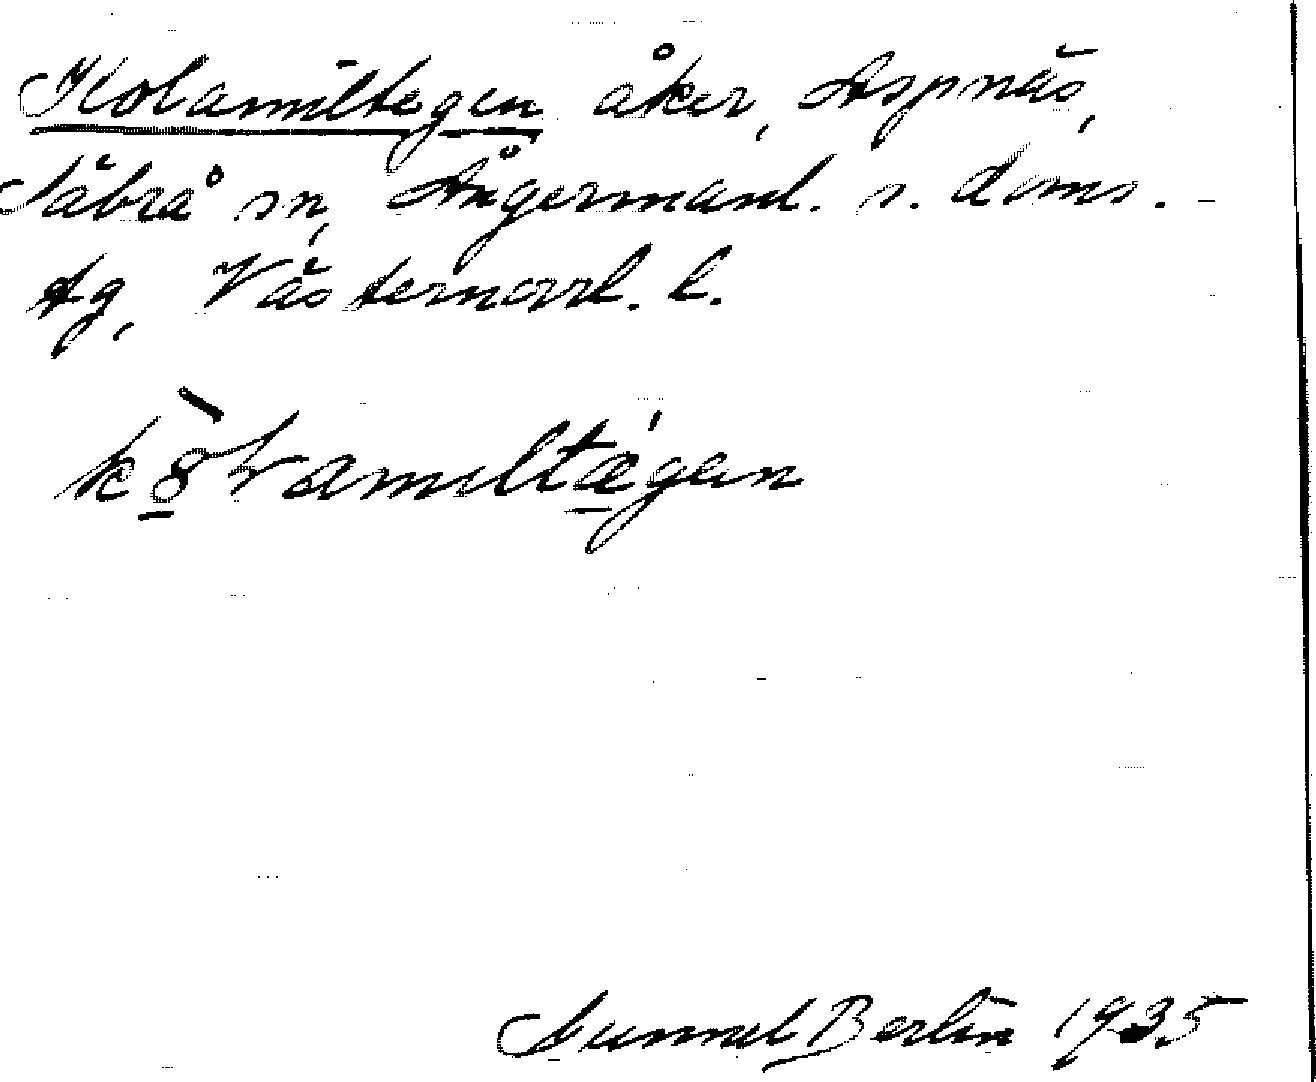 Kolamiltegen åker, Aspnäs,
Säbrå sn, Ångermanl. s. doms.-
tg, Västernorrl. l.
Gunnel Berlin 1935